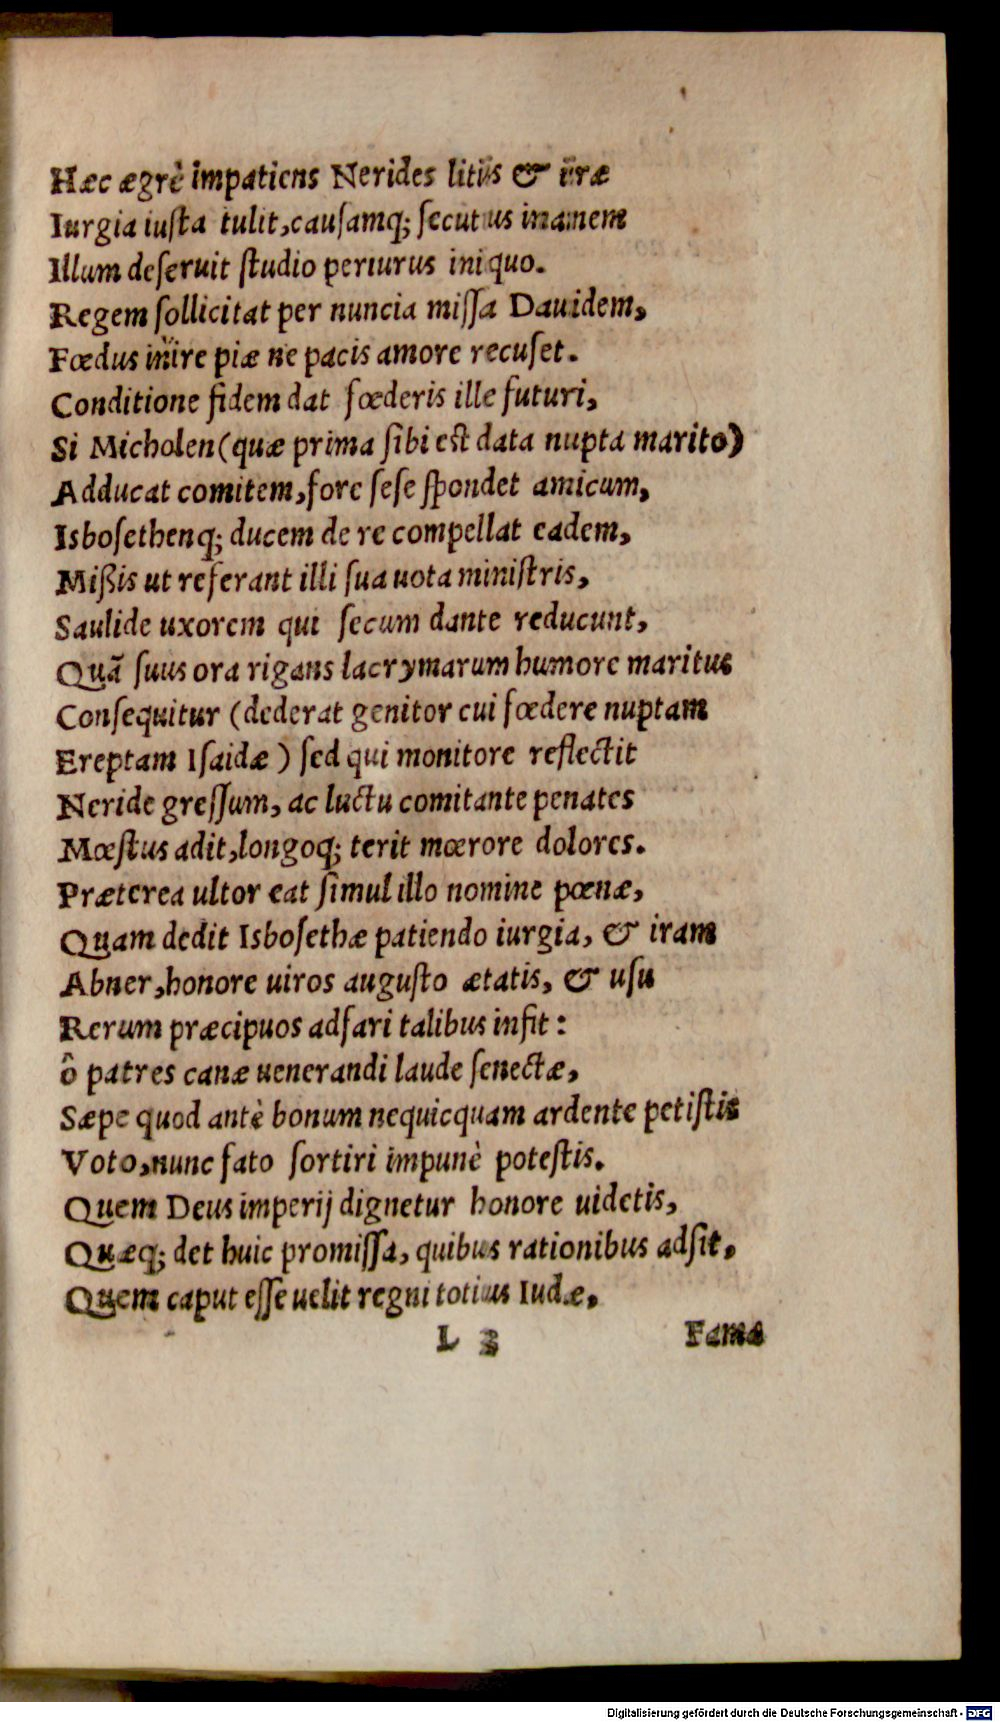 Hæc ægrè impatiens Nerides litis & iræ
Iurgia iusta tulit, causamq; secutus inanem
Illum deseruit studio periturus iniquo.
Regem sollicitat per nuncia missa Dauidem,
Fœdus inire piæ ne pacis amore recuset.
Conditione fidem dat fœderis ille futuri,
Si Micholen (quæ prima sibi est data nupta marito)
Adducat comitem, fore sese spondet amicum,
Isbosethenq; ducem de re compellat eadem,
Mißis ut referant illi sua uota ministris,
Saulide uxorem qui secum dante reducunt,
Quã suus ora rigans lacrymarum humore maritus
Consequitur (dederat genitor cui fœdere nuptam
Ereptam Isaidæ) sed qui monitore reflectit
Neride gressum, ac luctu comitante penates
Mœstus adit, longoq; terit mœrore dolores.
Præterea ultor eat simul illo nomine pœnæ,
Quam dedit Isbosethæ patiendo iurgia, & iram
Abner, honore uiros augusto ætatis, & usu
Rerum præcipuos adfari talibus infit:
ô patres canæ uenerandi laude senectæ,
Sæpe quod antè bonum nequicquam ardente petistis
Voto, nunc fato sortiri impunè potestis.
Quem Deus imperij dignetur honore uidetis,
Quæq; det huic promissa, quibus rationibus adsit,
Quem caput esse uelit regni totius Iudæ,
L 3 Fama
Digitalisierung gefördert durch die Deutsche Forschungsgemeinschaft - DFG